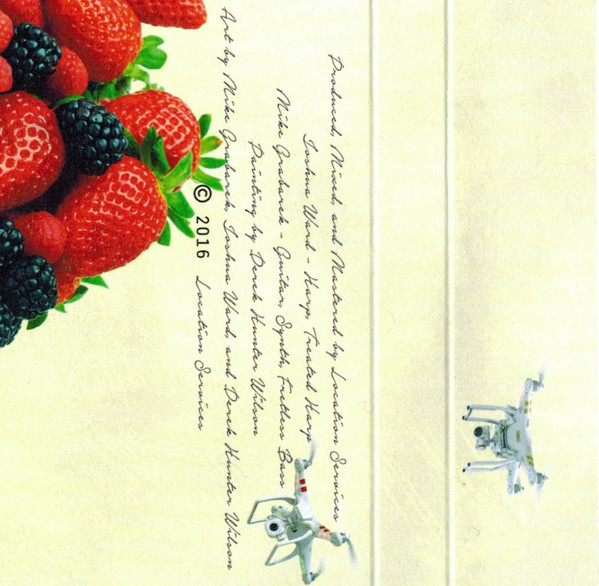 Produced, Mixed, and Mastered by Location Services
Joshua Ward - Harp, Treated Harp
Mike Grabarek - Guitar, Synth, Fretless Bass
Painting by Derek Hunter Wilson
Art by Mike Grabarek, Joshua Ward, and Derek Hunter Wilson
© 2016 Location Services